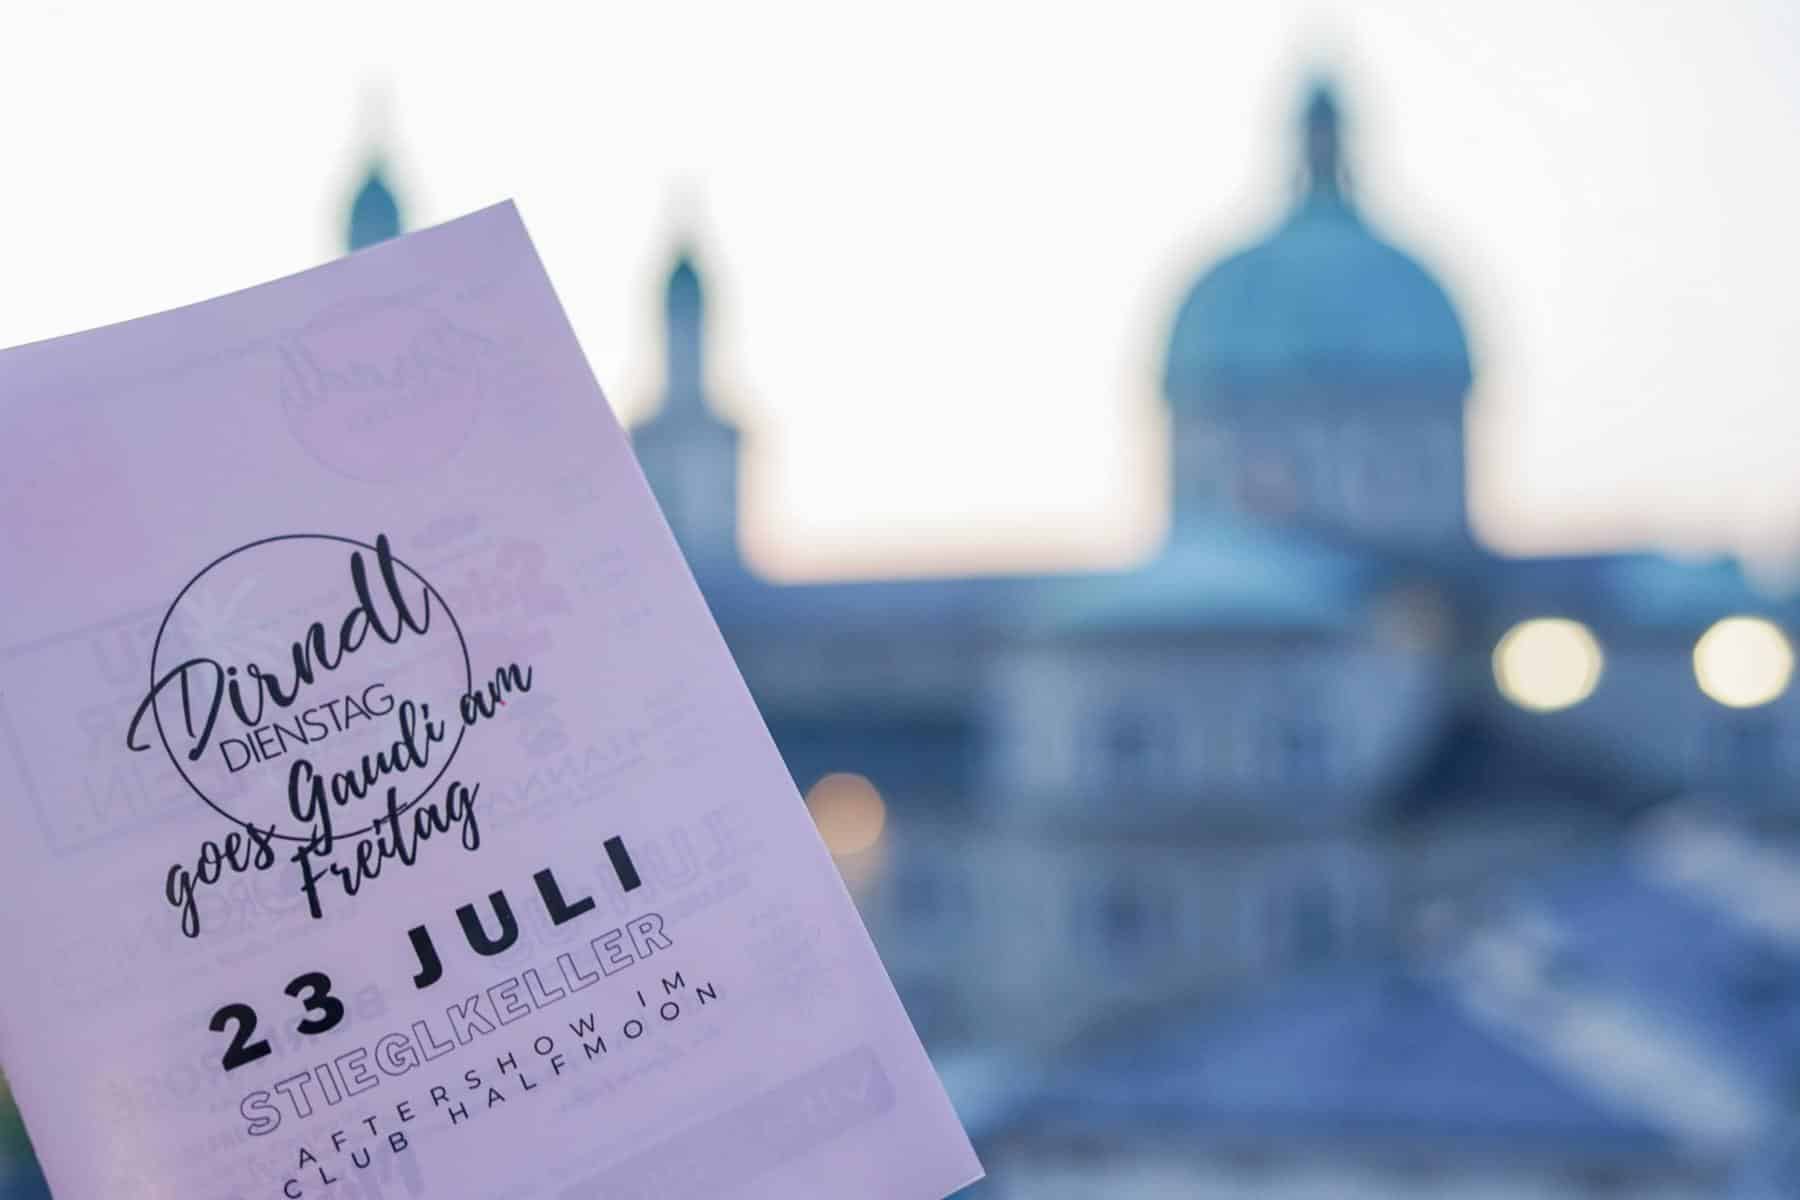 Dirndl
DIENSTAG
goes Gaudi am
Freitag
23 JULI
STIEGLKELLER
AFTERSHOW IM
CLUB HALFMOON